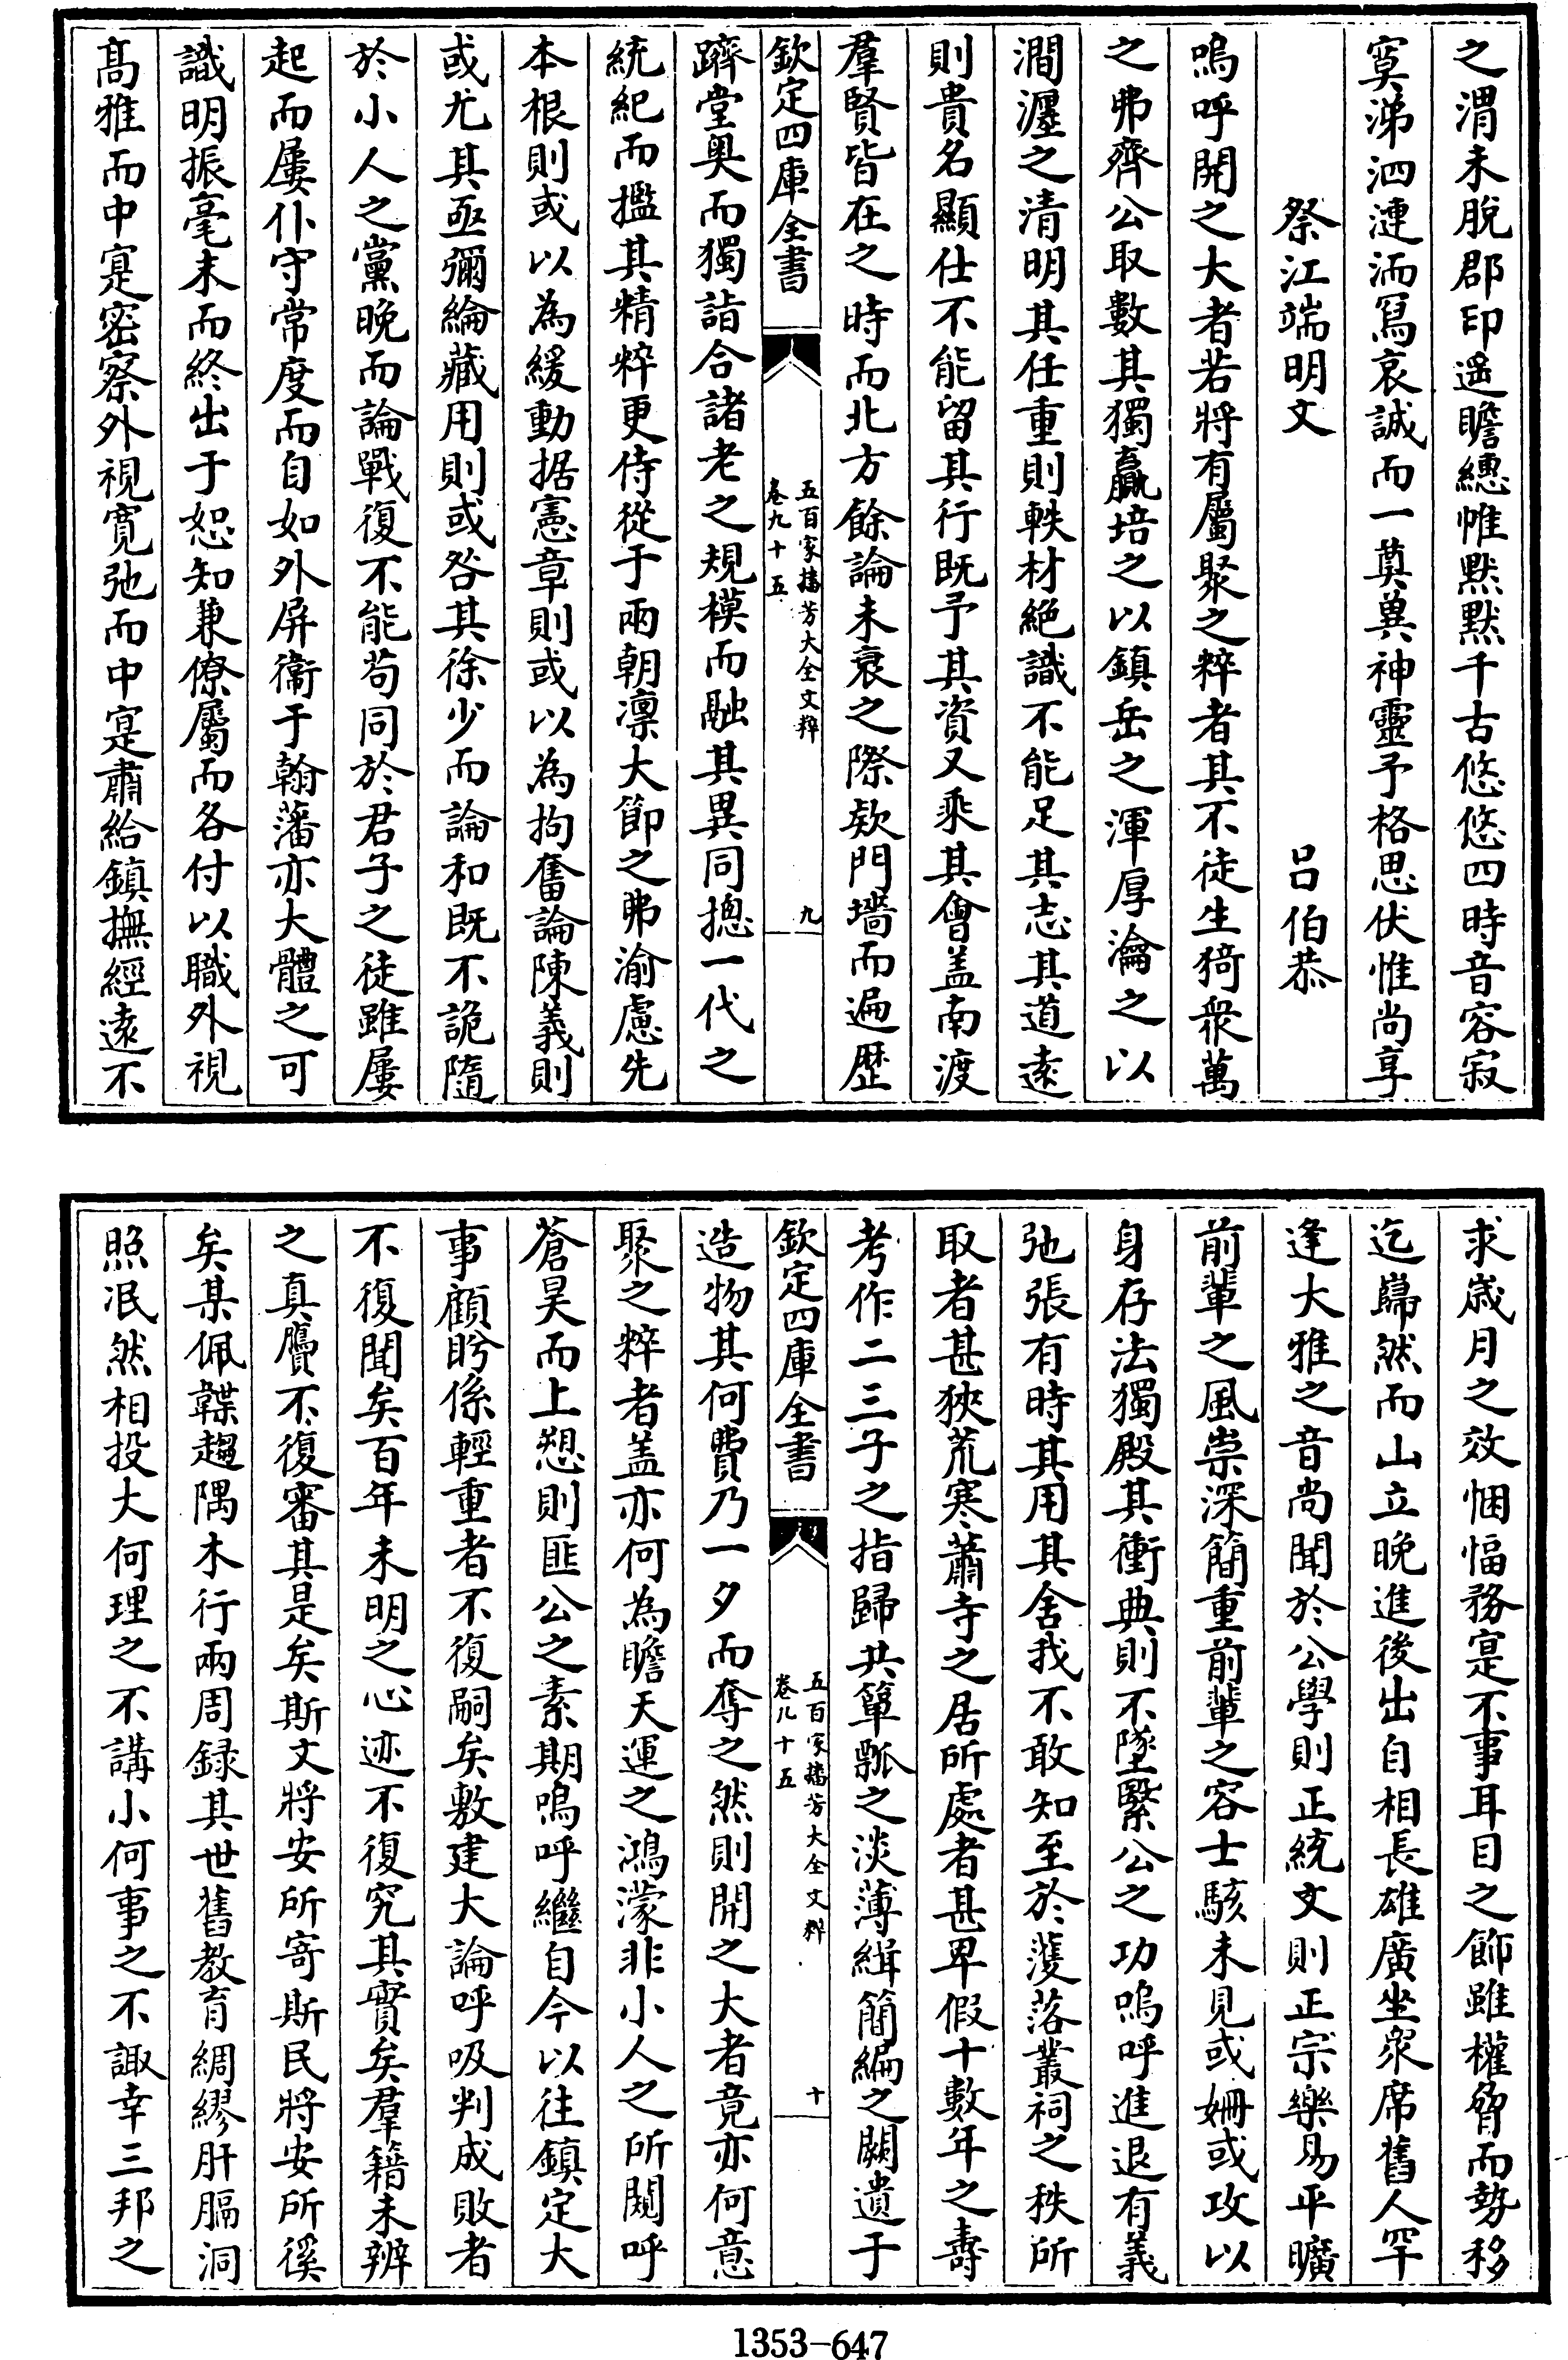 之渭未脫郡印遥瞻繐帷黙黙千古悠悠四時音容寂
寞涕泗漣洏冩哀誠而一奠兾神靈予格思伏惟尚享
祭江端明文 吕伯恭
嗚呼開之大者若將有屬聚之粹者其不徒生猗衆萬
之弗齊公取數其獨贏培之以鎮岳之渾厚瀹之以
澗瀍之清明其任重則軼材絶識不能足其志其道逺
則貴名顯仕不能留其行既予其資又乘其會盖南渡
羣賢皆在之時而北方餘論未衰之際欵門墻而遍歴
欽定四庫全書
五百家播芳大全文粹
卷九十五
九
躋堂奥而獨詣合諸老之規模而融其異同揔一代之
統紀而擥其精粹更侍從于兩朝凛大節之弗渝慮先
本根則或以為緩動据憲章則或以為拘奮論陳義則
或尤其亟彌綸藏用則或咎其徐少而論和既不詭隨
於小人之黨晚而論戰復不能茍同於君子之徒雖屢
起而屢仆守常度而自如外屏衞于翰藩亦大體之可
識明振毫末而終出于恕知兼僚屬而各付以職外視
髙雅而中寔密察外視寛弛而中寔肅給鎮撫經逺不
求嵗月之效悃愊務寔不事耳目之飾雖權脅而勢移
迄巋然而山立晚進後出自相長雄廣坐衆席舊人罕
逢大雅之音尚聞於公學則正統文則正宗樂易平曠
前輩之風崇深簡重前輩之容士駭未見或姍或攻以
身存法獨殿其衝典則不墜繄公之功嗚呼進退有義
弛張有時其用其舍我不敢知至於濩落叢祠之秩所
取者甚狹荒寒蕭寺之居所處者甚卑假十數年之壽
考作二三子之指歸共簞瓢之淡薄緝簡編之闕遺于
欽定四庫全書
五百家播芳大全文粹
卷九十五
十
造物其何費乃一夕而奪之然則開之大者竟亦何意
聚之粹者盖亦何為瞻天運之鴻濛非小人之所闚呼
蒼昊而上愬則匪公之素期嗚呼繼自今以往鎮定大
事顧盻係輕重者不復嗣矣敷建大論呼吸判成敗者
不復聞矣百年未明之心迹不復究其實矣羣籍未辨
之真贗不復審其是矣斯文將安所寄斯民將安所徯
矣某佩韘趨隅木行兩周録其世舊教育綢繆肝膈洞
照泯然相投大何理之不講小何事之不諏幸三邦之
1353-647